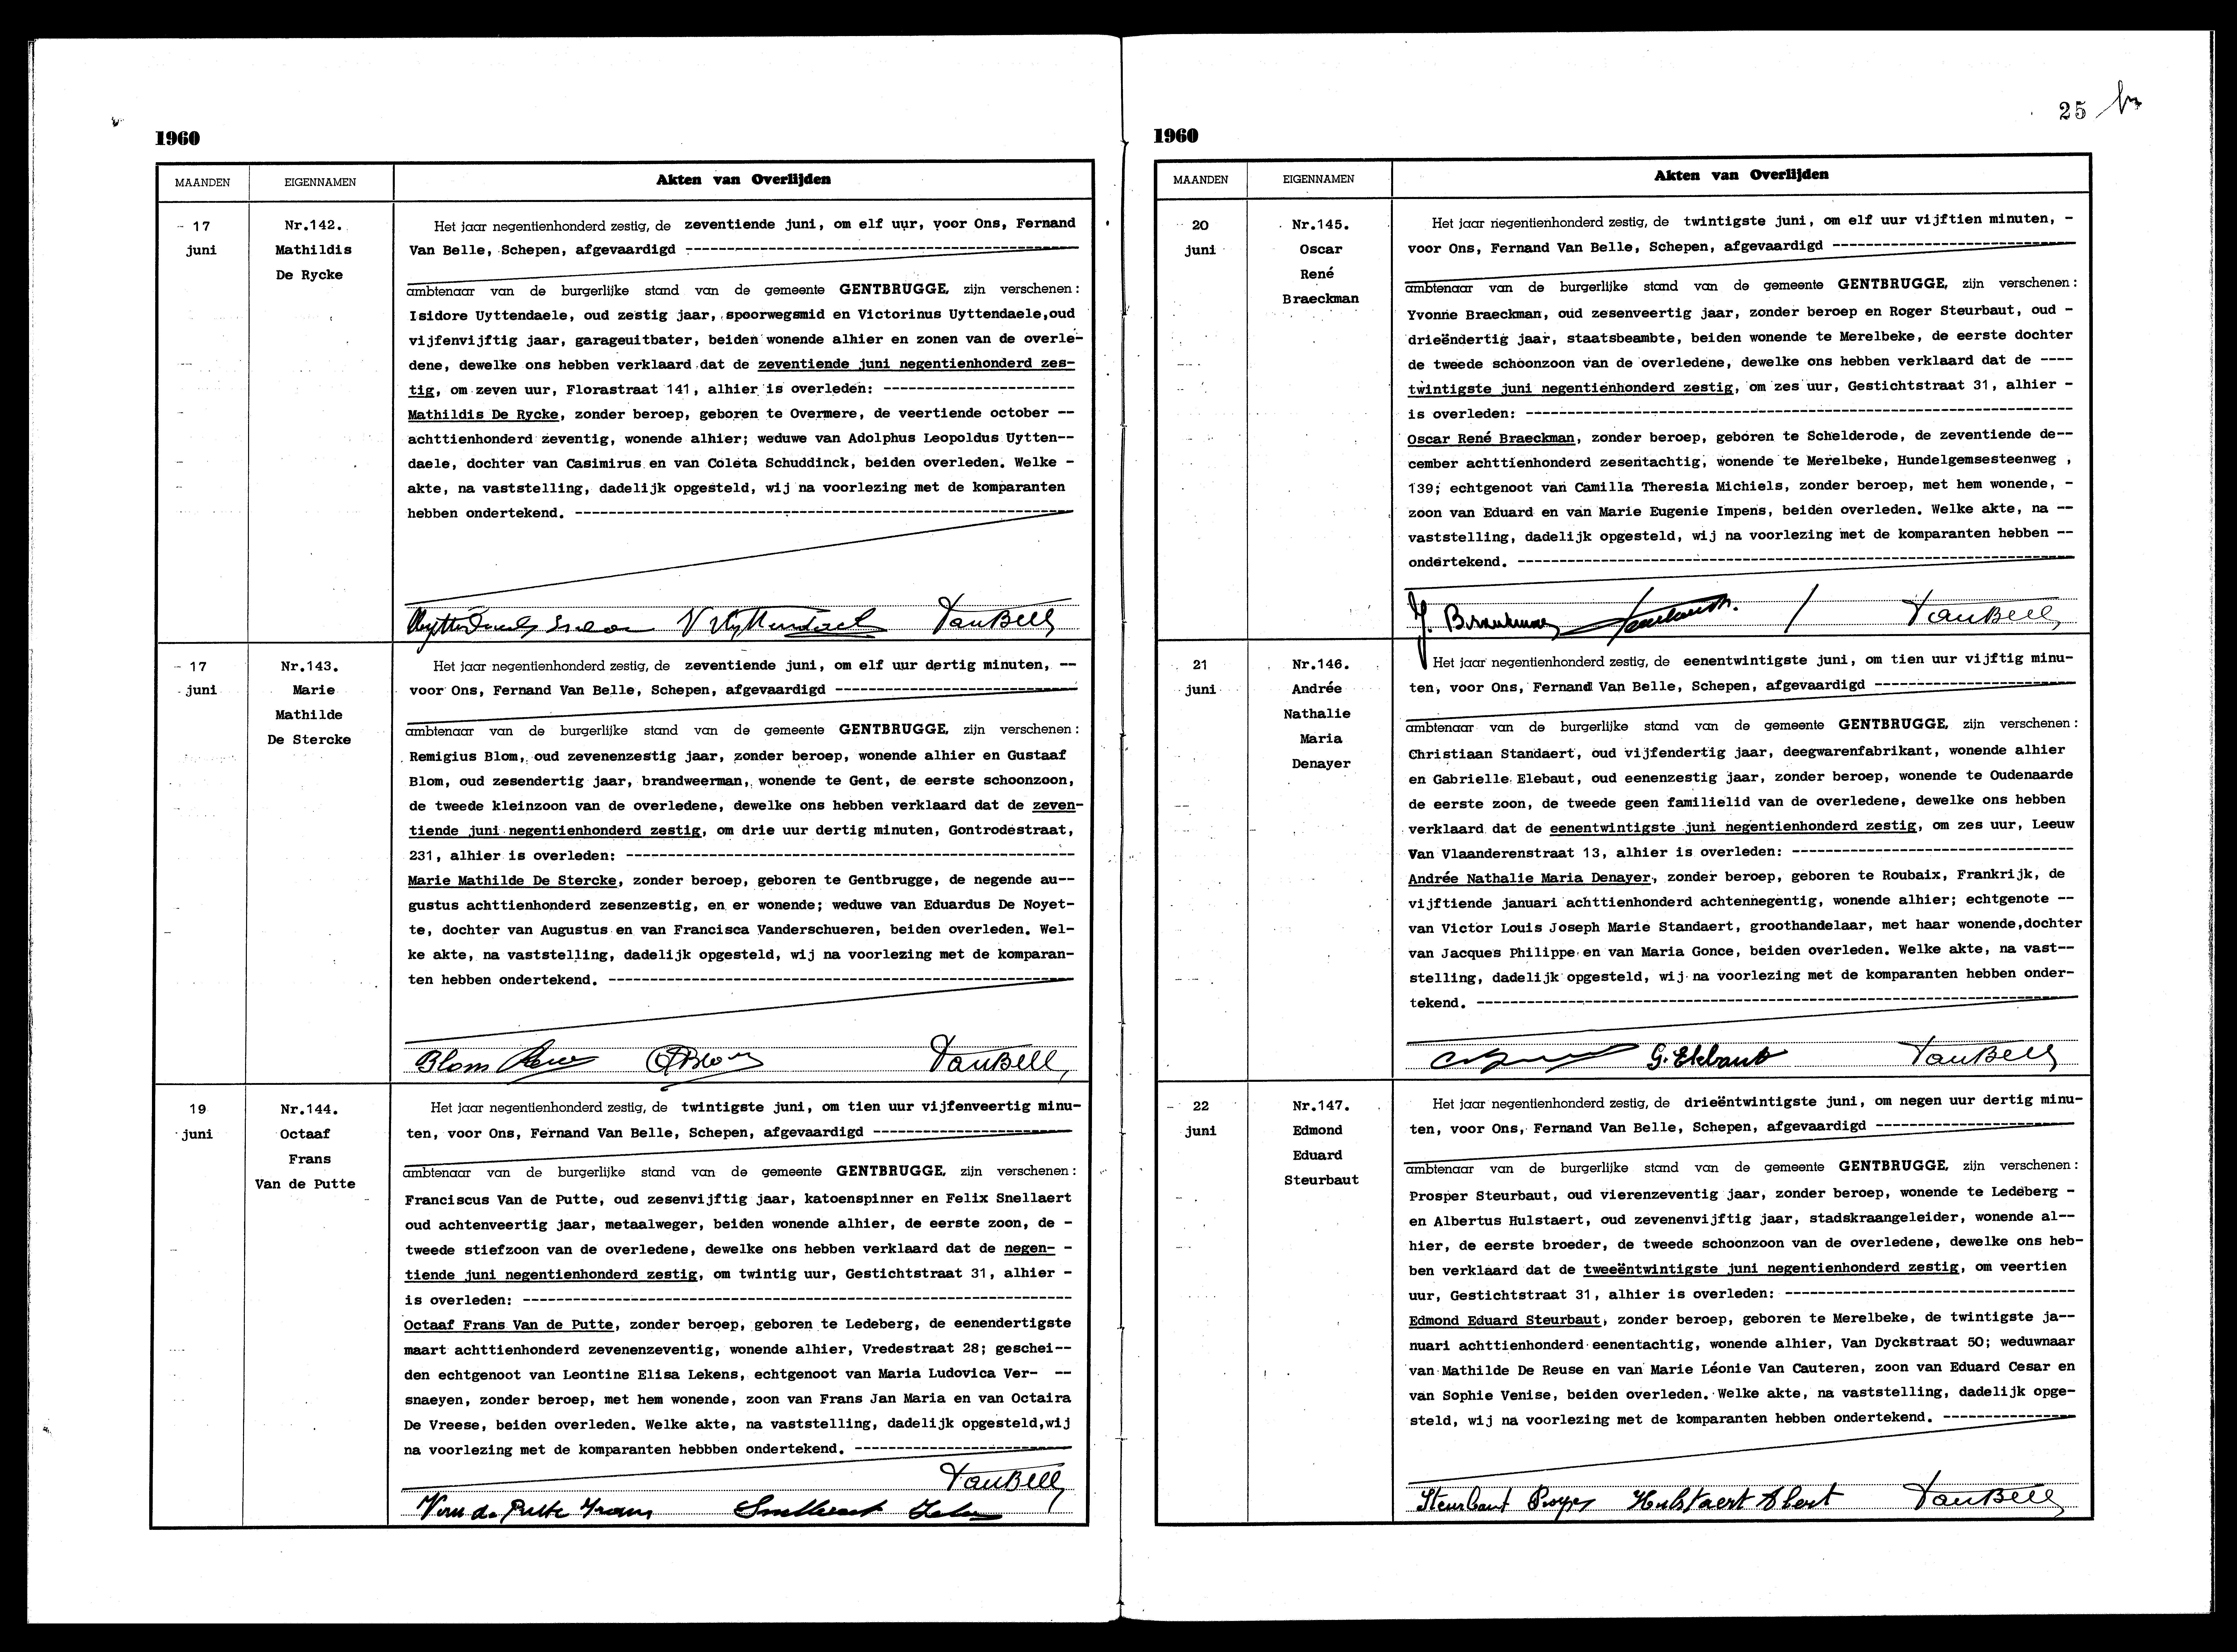 1960
MAANDEN EIGENNAMEN Akten van Overlijden
17
juni
Nr.142.
Mathildis
De Rycke
Het jaar negentienhonderd zestig, de zeventiende juni, om elf uur, voor Ons, Fernand
Van Belle, Schepen, afgevaardigd
ambtenaar van de burgerlijke stand van de gemeente GENTBRUGGE, zijn verschenen:
Isidore Uyttendaele, oud zestig jaar, spoorwegsmid en Victorinus Uyttendaele,oud
vijfenvijftig jaar, garageuitbater, beiden wonende alhier en zonen van de overle-
dene, dewelke ons hebben verklaard dat de zeventiende juni negentienhonderd zes-
tig, om zeven uur, Florastraat 141, alhier is overleden:
Mathildis De Rycke, zonder beroep, geboren te Overmere, de veertiende october --
achttienhonderd zeventig, wonende alhier; weduwe van Adolphus Leopoldus Uytten--
daele, dochter van Casimirus en van Coleta Schuddinck, beiden overleden. Welke -
akte, na vaststelling, dadelijk opgesteld, wij na voorlezing met de komparanten
hebben ondertekend.
VanBelle
17
juni
Nr.143.
Marie
Mathilde
De Stercke
Het jaar negentienhonderd zestig, de zeventiende juni, om elf uur dertig minuten, --
voor Ons, Fernand Van Belle, Schepen, afgevaardigd
ambtenaar van de burgerlijke stand van de gemeente GENTBRUGGE, zijn verschenen:
Remigius Blom, oud zevenenzestig jaar, zonder beroep, wonende alhier en Gustaaf
Blom, oud zesendertig jaar, brandweerman, wonende te Gent, de eerste schoonzoon,
de tweede kleinzoon van de overledene, dewelke ons hebben verklaard dat de zeven-
tiende juni negentienhonderd zestig, om drie uur dertig minuten, Gontrodestraat,
231, alhier is overleden:
Marie Mathilde De Stercke, zonder beroep, geboren te Gentbrugge, de negende au--
gustus achttienhonderd zesenzestig, en er wonende; weduwe van Eduardus De Noyet-
te, dochter van Augustus en van Francisca Vanderschueren, beiden overleden. Wel-
ke akte, na vaststelling, dadelijk opgesteld, wij na voorlezing met de komparan-
ten hebben ondertekend.
Blom GBlom VanBelle
19
juni
Nr.144.
Octaaf
Frans
Van de Putte
Het jaar negentienhonderd zestig, de twintigste juni, om tien uur vijfenveertig minu-
ten, voor Ons, Fernand Van Belle, Schepen, afgevaardigd
ambtenaar van de burgerlijke stand van de gemeente GENTBRUGGE, zijn verschenen:
Franciscus Van de Putte, oud zesenvijftig jaar, katoenspinner en Felix Snellaert
oud achtenveertig jaar, metaalweger, beiden wonende alhier, de eerste zoon, de -
tweede stiefzoon van de overledene, dewelke ons hebben verklaard dat de negen- -
tiende juni negentienhonderd zestig, om twintig uur, Gestichtstraat 31, alhier -
is overleden:
Octaaf Frans Van de Putte, zonder beroep, geboren te Ledeberg, de eenendertigste
maart achttienhonderd zevenenzeventig, wonende alhier, Vredestraat 28; geschei--
den echtgenoot van Leontine Elisa Lekens, echtgenoot van Maria Ludovica Ver- --
snaeyen, zonder beroep, met hem wonende, zoon van Frans Jan Maria en van Octaira
De Vreese, beiden overleden. Welke akte, na vaststelling, dadelijk opgesteld,wij
na voorlezing met de komparanten hebbben ondertekend.
VanBelle
Van de Putte Frans Snellaert Felix
25
1960
MAANDEN EIGENNAMEN Akten van Overlijden
20
juni
Nr.145.
Oscar
René
Braeckman
Het jaar negentienhonderd zestig, de twintigste juni, om elf uur vijftien minuten, -
voor Ons, Fernand Van Belle, Schepen, afgevaardigd
ambtenaar van de burgerlijke stand van de gemeente GENTBRUGGE, zijn verschenen:
Yvonne Braeckman, oud zesenveertig jaar, zonder beroep en Roger Steurbaut, oud -
drieëndertig jaar, staatsbeambte, beiden wonende te Merelbeke, de eerste dochter
de tweede schoonzoon van de overledene, dewelke ons hebben verklaard dat de ----
twintigste juni negentienhonderd zestig, om zes uur, Gestichtstraat 31, alhier -
is overleden:
Oscar René Braeckman, zonder beroep, geboren te Schelderode, de zeventiende de--
cember achttienhonderd zesentachtig, wonende te Merelbeke, Hundelgemsesteenweg ,
139; echtgenoot van Camilla Theresia Michiels, zonder beroep, met hem wonende, -
zoon van Eduard en van Marie Eugenie Impens, beiden overleden. Welke akte, na --
vaststelling, dadelijk opgesteld, wij na voorlezing met de komparanten hebben --
ondertekend.
Y. Braeckman VanBelle
21
juni
Nr.146.
Andrée
Nathalie
Maria
Denayer
Het jaar negentienhonderd zestig, de eenentwintigste juni, om tien uur vijftig minu-
ten, voor Ons, Fernand Van Belle, Schepen, afgevaardigd
ambtenaar van de burgerlijke stand van de gemeente GENTBRUGGE, zijn verschenen:
Christiaan Standaert, oud vijfendertig jaar, deegwarenfabrikant, wonende alhier
en Gabrielle Elebaut, oud eenenzestig jaar, zonder beroep, wonende te Oudenaarde
de eerste zoon, de tweede geen familielid van de overledene, dewelke ons hebben
verklaard dat de eenentwintigste juni negentienhonderd zestig, om zes uur, Leeuw
Van Vlaanderenstraat 13, alhier is overleden:
Andrée Nathalie Maria Denayer, zonder beroep, geboren te Roubaix, Frankrijk, de
vijftiende januari achttienhonderd achtennegentig, wonende alhier; echtgenote --
van Victor Louis Joseph Marie Standaert, groothandelaar, met haar wonende,dochter
van Jacques Philippe en van Maria Gonce, beiden overleden. Welke akte, na vast--
stelling, dadelijk opgesteld, wij na voorlezing met de komparanten hebben onder-
tekend.
G. Elebaut VanBelle
22
juni
Nr.147.
Edmond
Eduard
Steurbaut
Het jaar negentienhonderd zestig, de drieëntwintigste juni, om negen uur dertig minu-
ten, voor Ons, Fernand Van Belle, Schepen, afgevaardigd
ambtenaar van de burgerlijke stand van de gemeente GENTBRUGGE, zijn verschenen:
Prosper Steurbaut, oud vierenzeventig jaar, zonder beroep, wonende te Ledeberg -
en Albertus Hulstaert, oud zevenenvijftig jaar, stadskraangeleider, wonende al--
hier, de eerste broeder, de tweede schoonzoon van de overledene, dewelke ons heb-
ben verklaard dat de tweeëntwintigste juni negentienhonderd zestig, om veertien
uur, Gestichtstraat 31, alhier is overleden:
Edmond Eduard Steurbaut, zonder beroep, geboren te Merelbeke, de twintigste ja--
nuari achttienhonderd eenentachtig, wonende alhier, Van Dyckstraat 50; weduwnaar
van Mathilde De Reuse en van Marie Léonie Van Cauteren, zoon van Eduard Cesar en
van Sophie Venise, beiden overleden. Welke akte, na vaststelling, dadelijk opge-
steld, wij na voorlezing met de komparanten hebben ondertekend.
Steurbaut Prosper Hulstaert Albert VanBelle